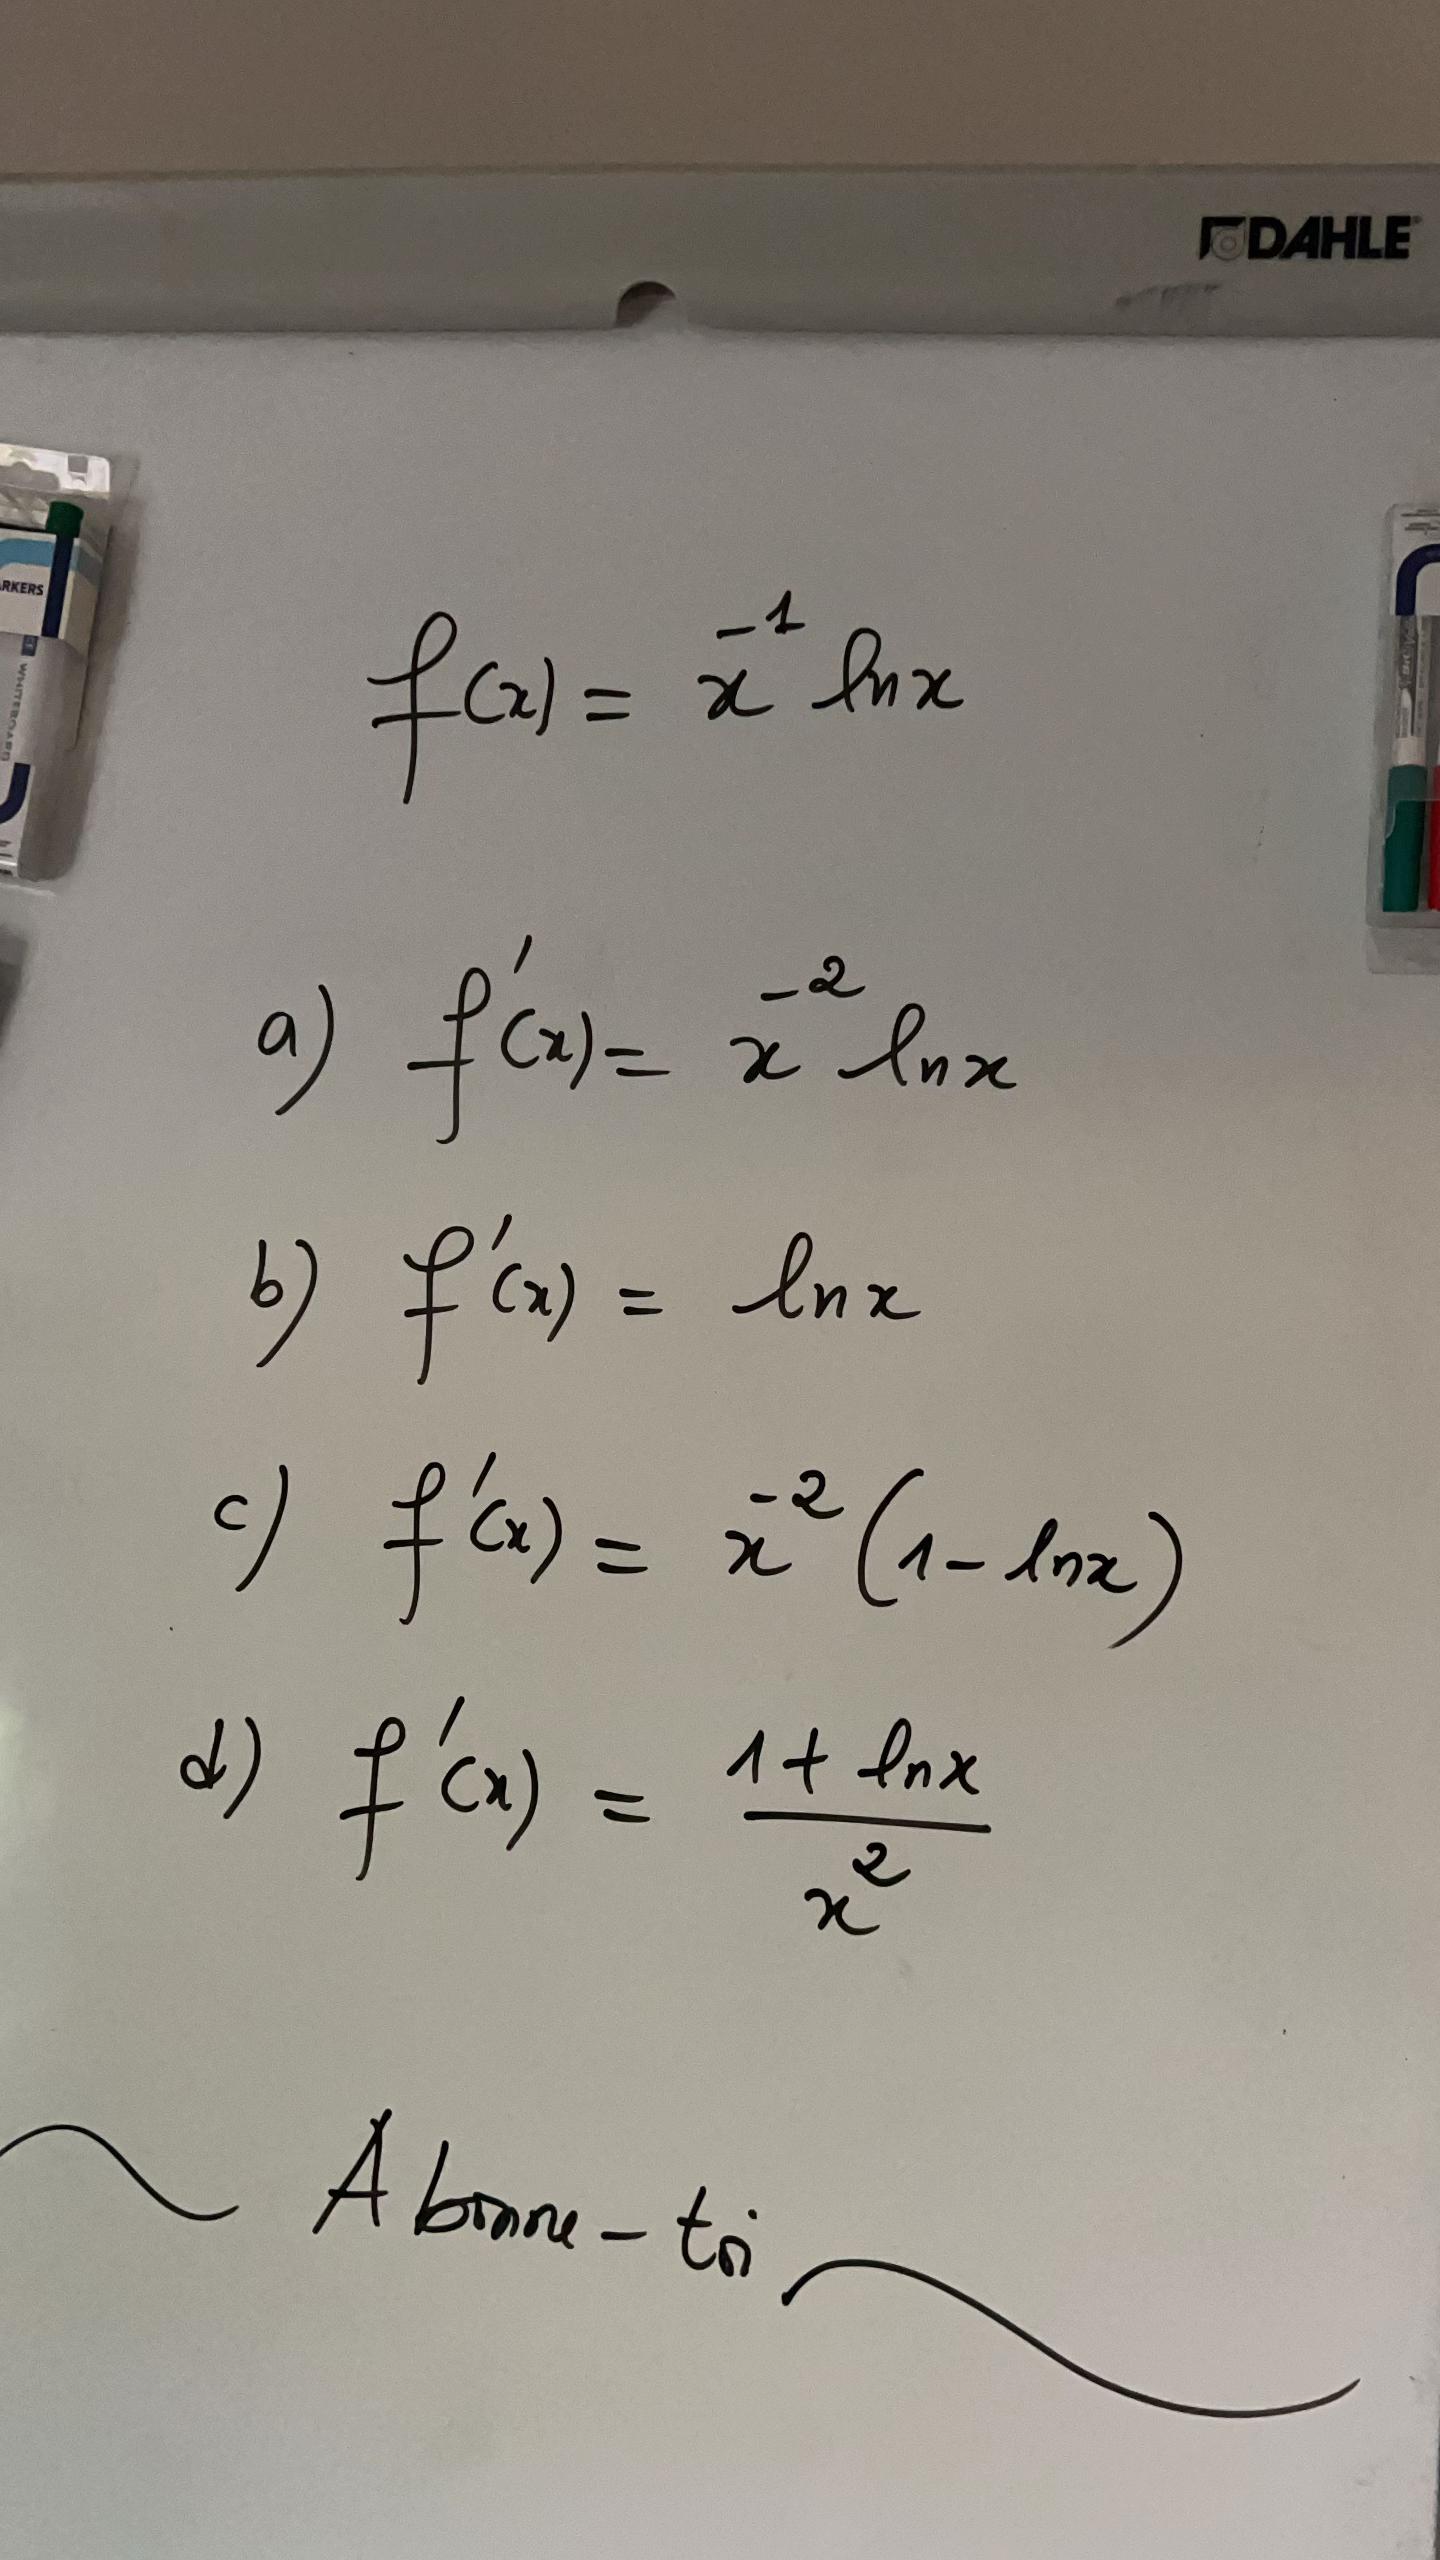 DAHLE
ARKERS
WHITEBOARD
f(x) = x⁻¹ ln x
a) f'(x) = x⁻² ln x
b) f'(x) = ln x
c) f'(x) = x⁻² (1 - ln x)
d) f'(x) = (1 + ln x) / x²
Abonne-toi